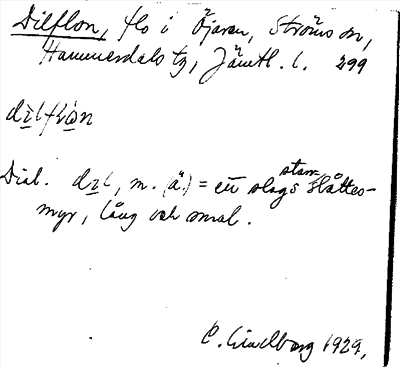 Dilflon, flo i Öjaren, Ströms sn,
Hammerdals tg, Jämtl. l. 299
dilflon
Dial. dil, m. (ä.) = ett slags starr-slåttes-
myr, lång och smal.
C. Lindberg 1929,